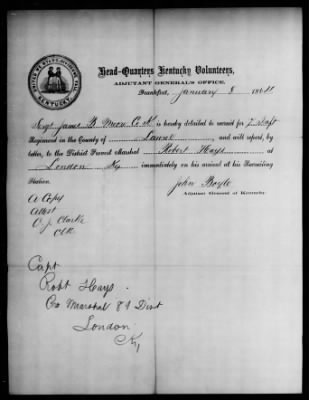 Head-Quarters Kentucky Volunteers,
ADJUTANT GENERAL'S OFFICE,
Frankfort, January 8 1864
Sergt James B. Co K is hereby detailed to recruit for 7"
Regiment in the County of Laurel, and will report, by
letter, to the District Provost Marshal Robert Hays at
London Ky immediately on his arrival at his Recruiting
Station.
John Boyle
Adjutant General of Kentucky
A Copy
Attest
O. J. Clarke
Clk
Capt
Robt Hays
Pro Marshal 8th Dist
London
Ky